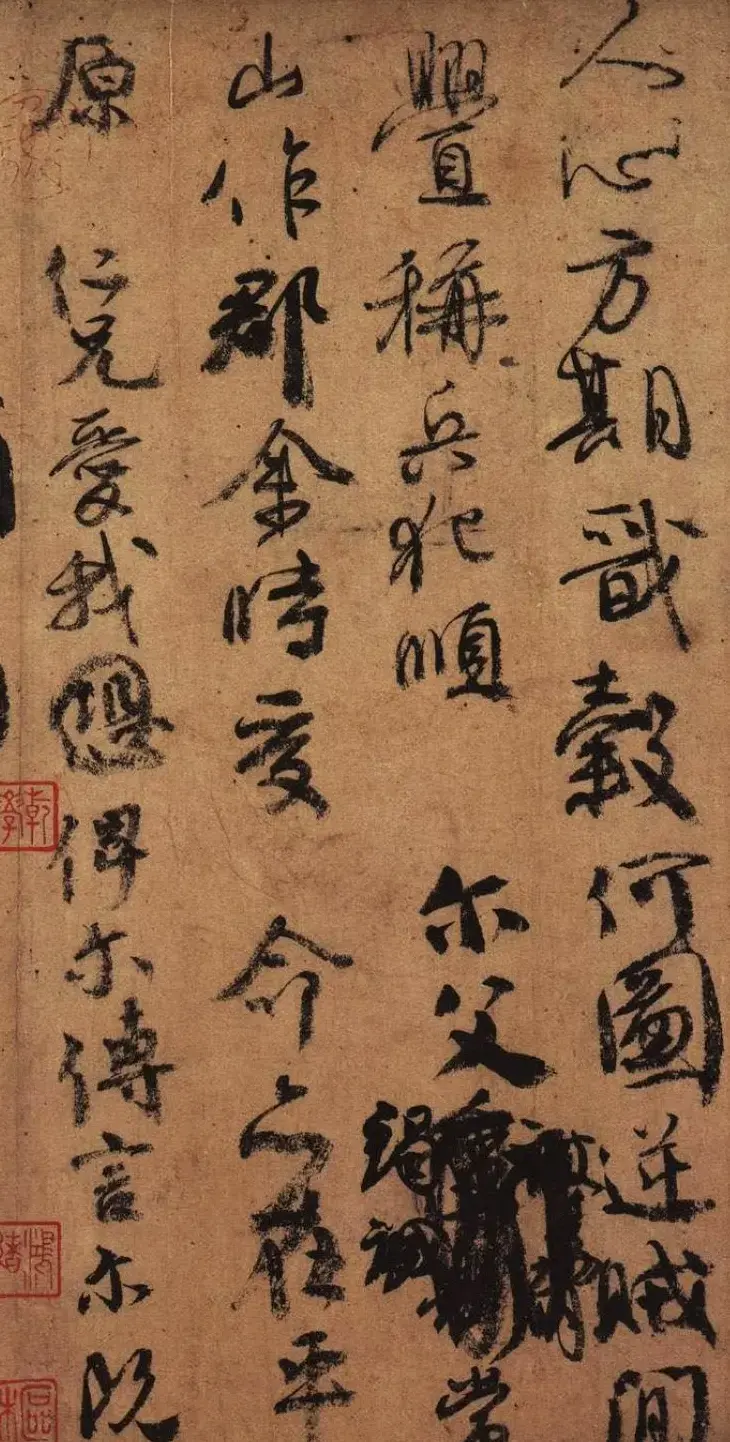 人心方期戩穀何圖逆賊間
舋稱兵犯順 尓父竭誠常
山作郡余時受 命亦在平
原 仁兄愛我俾尓傳言尓既